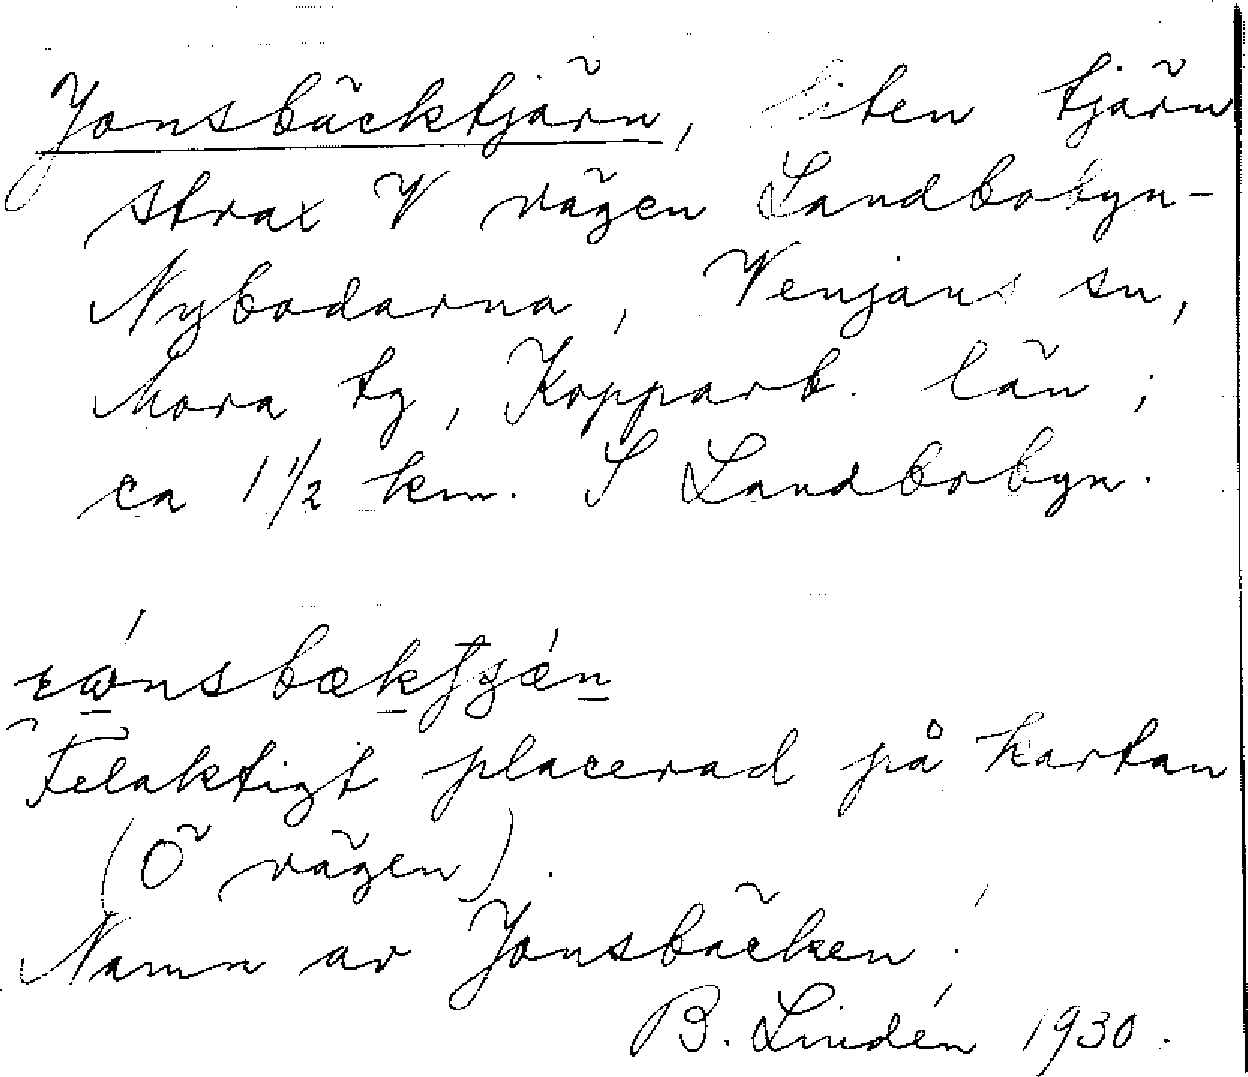 Jonsbäcktjärn, liten tjärn
strax V vägen Landbobyn-
Nybodarna, Venjans sn,
Mora tg, Kopparb. län;
ca 1 1/2 km. S Landbobyn.
Felaktigt placerad på kartan
(Ö vägen).
Namn av Jonsbäcken!
B. Lindén 1930.